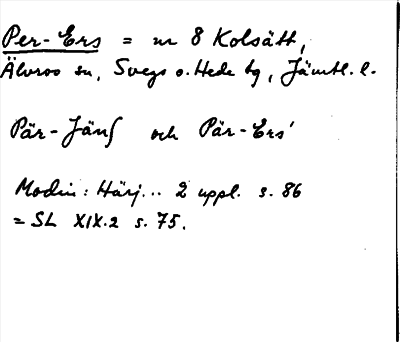 Per-Ers = nr 8 Kolsätt,
Älvros sn, Svegs o. Hede tg, Jämtl. l.
Pär-Jäns och Pär-Ers'
Modin: Härj... 2 uppl. s. 86
= SL XIX.2 s. 75.